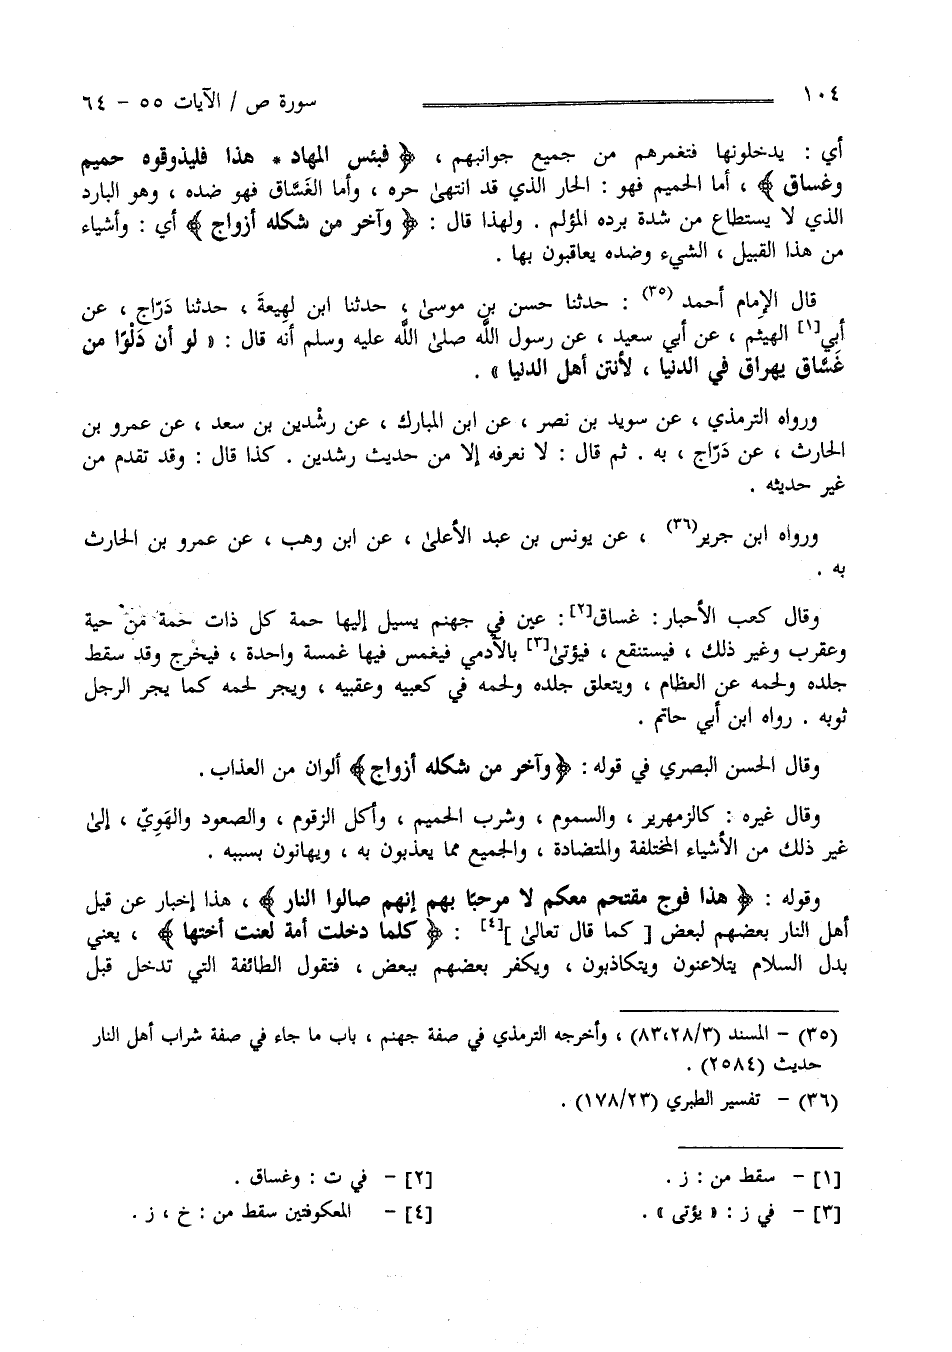 ١٠٤ سورة ص / الآيات ٥٥ – ٦٤
أي : يدخلونها فتغمرهم من جميع جوانبهم ، ﴿ فبئس المهاد * هذا فليذوقوه حميم
وغساق ﴾ ، أما الحميم فهو : الحار الذي قد انتهىٰ حره ، وأما الغَسَّاق فهو ضده ، وهو البارد
الذي لا يستطاع من شدة برده المؤلم . ولهذا قال : ﴿ وآخر من شكله أزواج ﴾ أي : وأشياء
من هذا القبيل ، الشيء وضده يعاقبون بها .
قال الإمام أحمد (٣٥) : حدثنا حسن بن موسىٰ ، حدثنا ابن لهِيعةَ ، حدثنا دَرّاج ، عن
أبي[١] الهيثم ، عن أبي سعيد ، عن رسول اللَّه صلىٰ اللَّه عليه وسلم أنه قال : « لو أن دَلْوًا من
غَسَّاق يهراق في الدنيا ، لأنتن أهل الدنيا » .
ورواه الترمذي ، عن سويد بن نصر ، عن ابن المبارك ، عن رشْدين بن سعد ، عن عمرو بن
الحارث ، عن دَرّاج ، به . ثم قال : لا نعرفه إلا من حديث رشدين . كذا قال : وقد تقدم من
غير حديثه .
ورواه ابن جرير(٣٦) ، عن يونس بن عبد الأعلىٰ ، عن ابن وهب ، عن عمرو بن الحارث
به .
وقال كعب الأحبار : غساق[٢] : عين في جهنم يسيل إليها حمة كل ذات حمة من حية
وعقرب وغير ذلك ، فيستنقع ، فيؤتىٰ[٣] بالآدمي فيغمس فيها غمسة واحدة ، فيخرج وقد سقط
جلده ولحمه عن العظام ، ويتعلق جلده ولحمه في كعبيه وعقبيه ، ويجر لحمه كما يجر الرجل
ثوبه . رواه ابن أبي حاتم .
وقال الحسن البصري في قوله : ﴿وآخر من شكله أزواج﴾ ألوان من العذاب .
وقال غيره : كالزمهرير ، والسموم ، وشرب الحميم ، وأكل الزقوم ، والصعود والهَوِيّ ، إلىٰ
غير ذلك من الأشياء المختلفة والمتضادة ، والجميع مما يعذبون به ، ويهانون بسببه .
وقوله : ﴿ هذا فوج مقتحم معكم لا مرحبًا بهم إنهم صالوا النار ﴾ ، هذا إخبار عن قيل
أهل النار بعضهم لبعض [ كما قال تعالىٰ ][٤] : ﴿ كلما دخلت أمة لعنت أختها ﴾ ، يعني
بدل السلام يتلاعنون ويتكاذبون ، ويكفر بعضهم ببعض ، فتقول الطائفة التي تدخل قبل
(٣٥) – المسند (٨٣،٢٨/٣) ، وأخرجه الترمذي في صفة جهنم ، باب ما جاء في صفة شراب أهل النار
حديث (٢٥٨٤) .
(٣٦) – تفسير الطبري (١٧٨/٢٣) .
[١] – سقط من : ز . [٢] – في ت : وغساق .
[٣] – في ز : « يؤتى » . [٤] – المعكوفتين سقط من : خ ، ز .